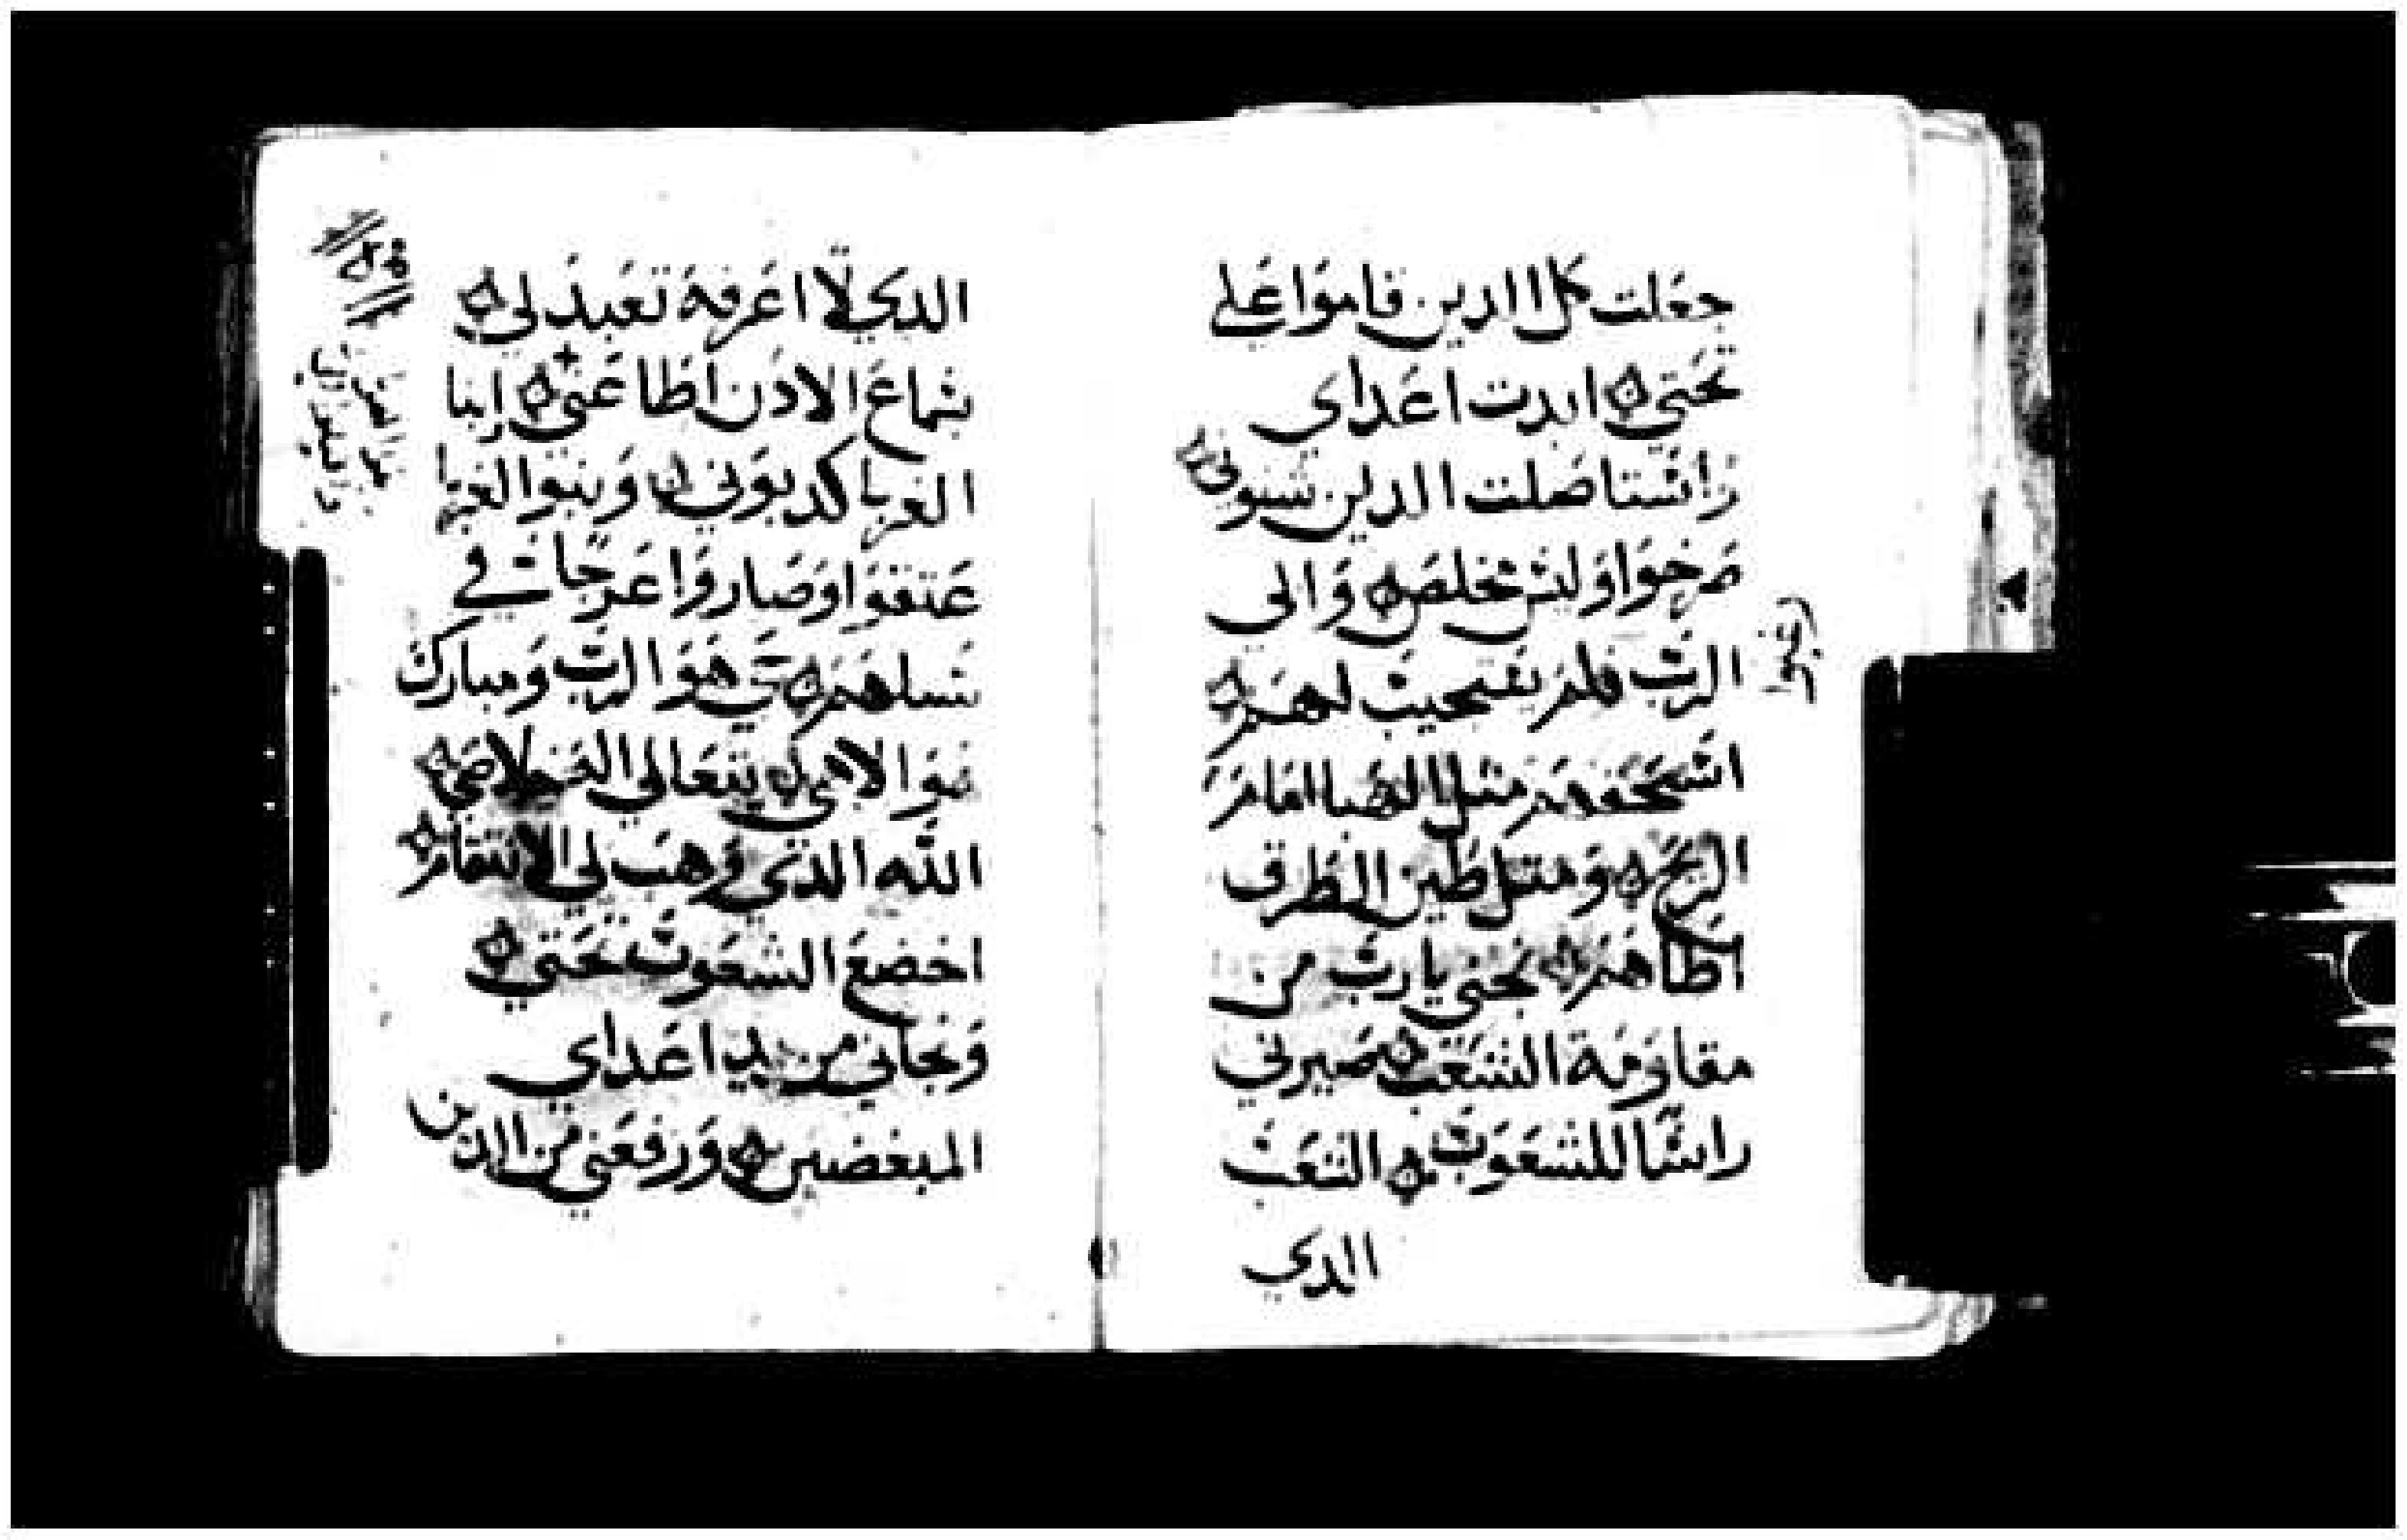 جعلت كل الدين قاموا علي
تحتي ابدت اعداي
واستاصلت الدين شنوني
صرخوا وليس مخلص والي
الرب فلم يستجيب لهم
اسحقهم مثل الهبا امام
الريح ومثل طين الطرق
اطاهم نجني يارب من
مقاومة الشعب صيرني
راسا للشعوب الشعب
الدي
الدي لا اعرفه تعبد لي
بسماع الادن اطاعني ابنا
الغربا كدبوني وبنوا الغربا
عتقوا وصاروا عرجا في
سبلهم حي هو الرب ومبارك
هو الاهي يتعالي اله خلاصي
الله الدي وهب لي الانتقام
اخضع الشعوب تحتي
ونجاني من يد اعداي
المبغضين ورفعني من الدين